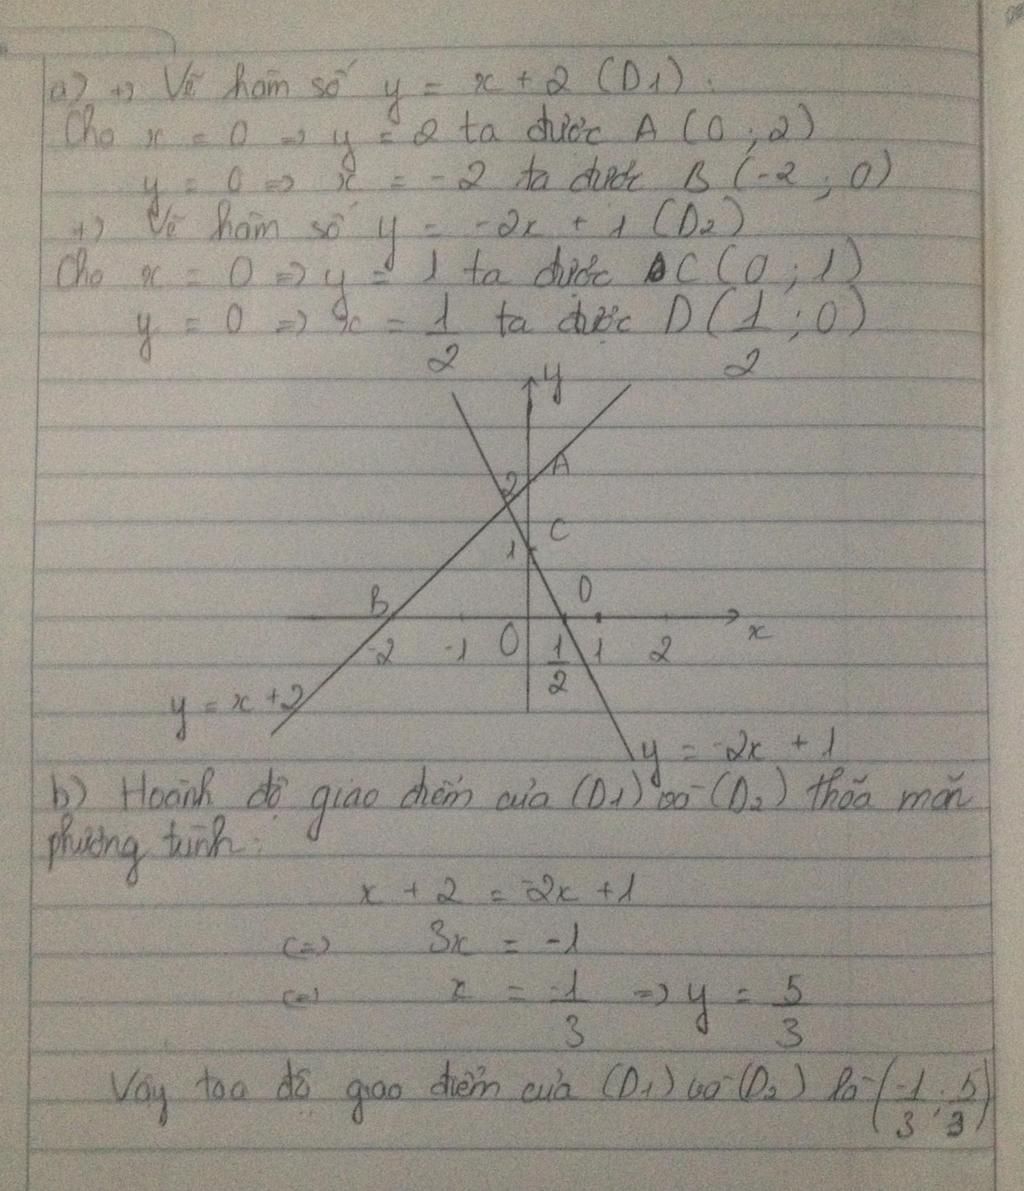 a) +) Vẽ hàm số y = x + 2 (D1).
Cho x = 0 => y = 2 ta được A (0 ; 2)
y = 0 => x = -2 ta được B (-2 ; 0)
+) Vẽ hàm số y = -2x + 1 (D2)
Cho x = 0 => y = 1 ta được C (0 ; 1)
y = 0 => x = 1/2 ta được D (1/2 ; 0)
y
A
2
C
1
B
D
-2 -1 O 1/2 1 2 x
y = x + 2
y = -2x + 1
b) Hoành độ giao điểm của (D1) và (D2) thỏa mãn
phương trình:
x + 2 = -2x + 1
<=> 3x = -1
<=> x = -1/3 => y = 5/3
Vậy tọa độ giao điểm của (D1) và (D2) là (-1/3 ; 5/3)